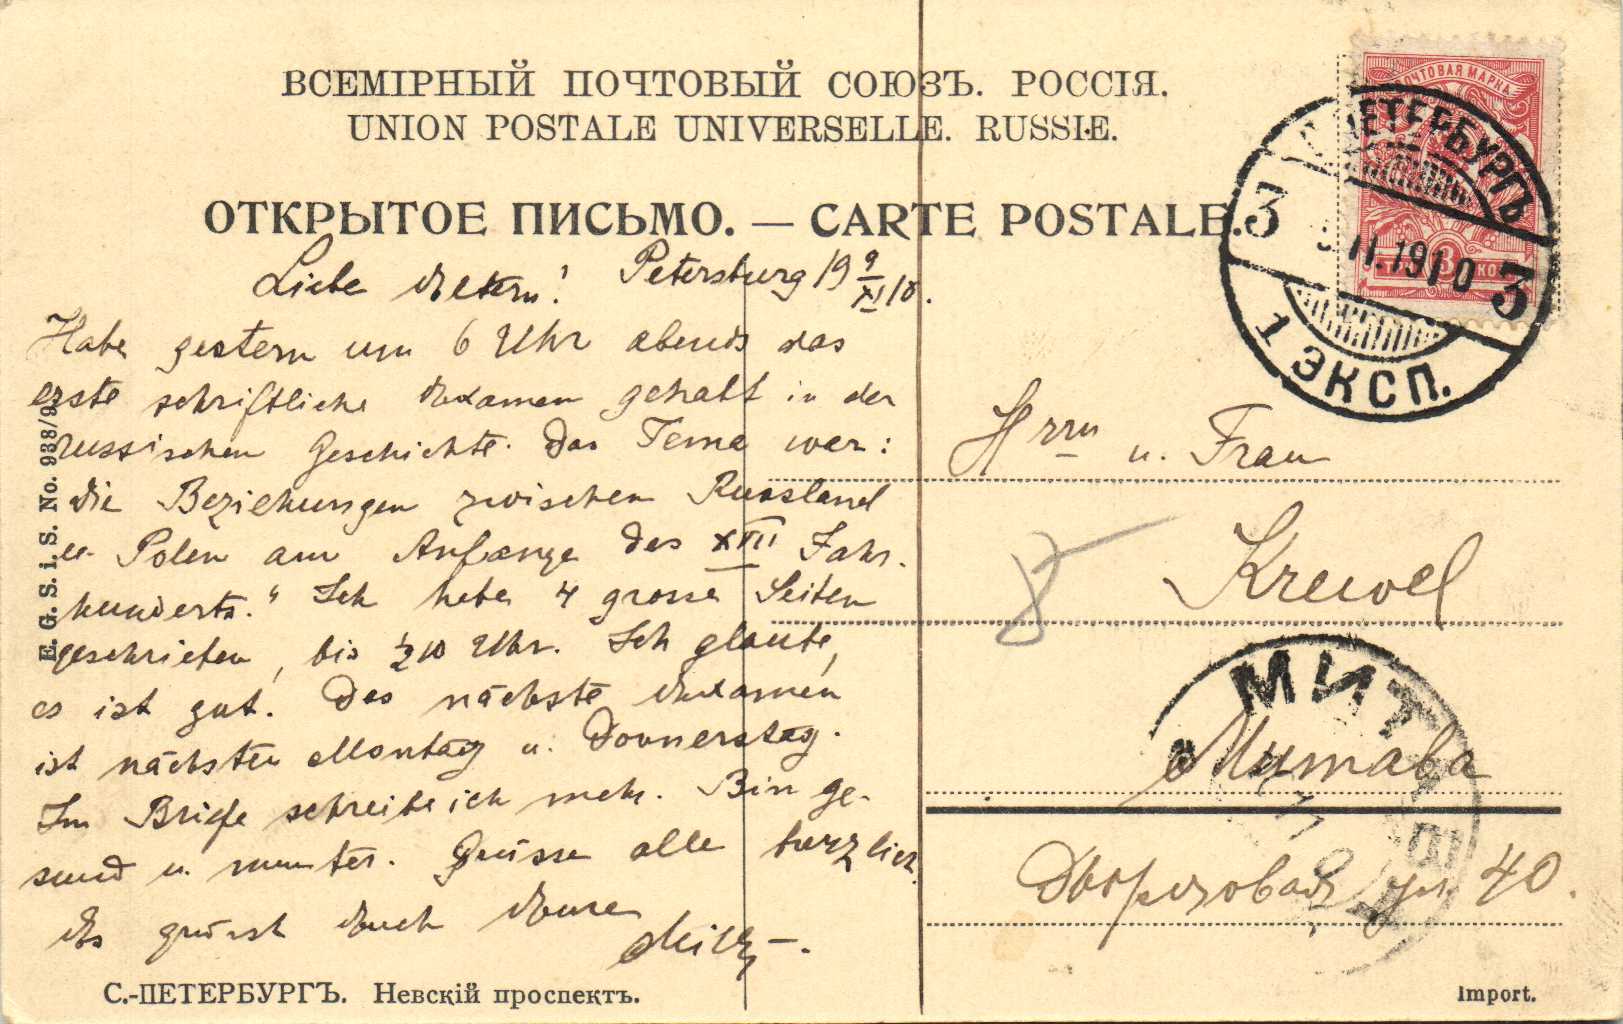 ВСЕМІРНЫЙ ПОЧТОВЫЙ СОЮЗЪ. РОССІЯ.
UNION POSTALE UNIVERSELLE. RUSSIE.
ОТКРЫТОЕ ПИСЬМО. — CARTE POSTALE.
ПОЧТОВАЯ МАРКА
3
КОП
С.ПЕТЕРБУРГЪ
3 11.1910 3
1 ЭКСП.
Liebe Eltern! Petersburg 19 9/XI 10.
Habe gestern um 6 Uhr abends das
erste schriftliche Examen gehabt in der
russischen Geschichte. Das Tema war:
die Beziehungen zwischen Russland
u. Polen am Anfange des XVII Jahr.
hunderts." Ich habe 4 grosse Seiten
geschrieben, bis ½10 Uhr. Ich glaube,
es ist gut. Das nächste Examen
ist nächsten Montag u. Donnerstag.
Im Briefe schreibe ich mehr. Bin ge-
sund u. munter. Grüsse alle herzlich.
Es grüsst Euch Eure
E. G. S. i. S. No. 938/9.
Hrrn u. Frau
Krewel
Митава
Дворцовая ул. 40.
МИТАВА
С.-ПЕТЕРБУРГЪ. Невскій проспектъ.
Import.